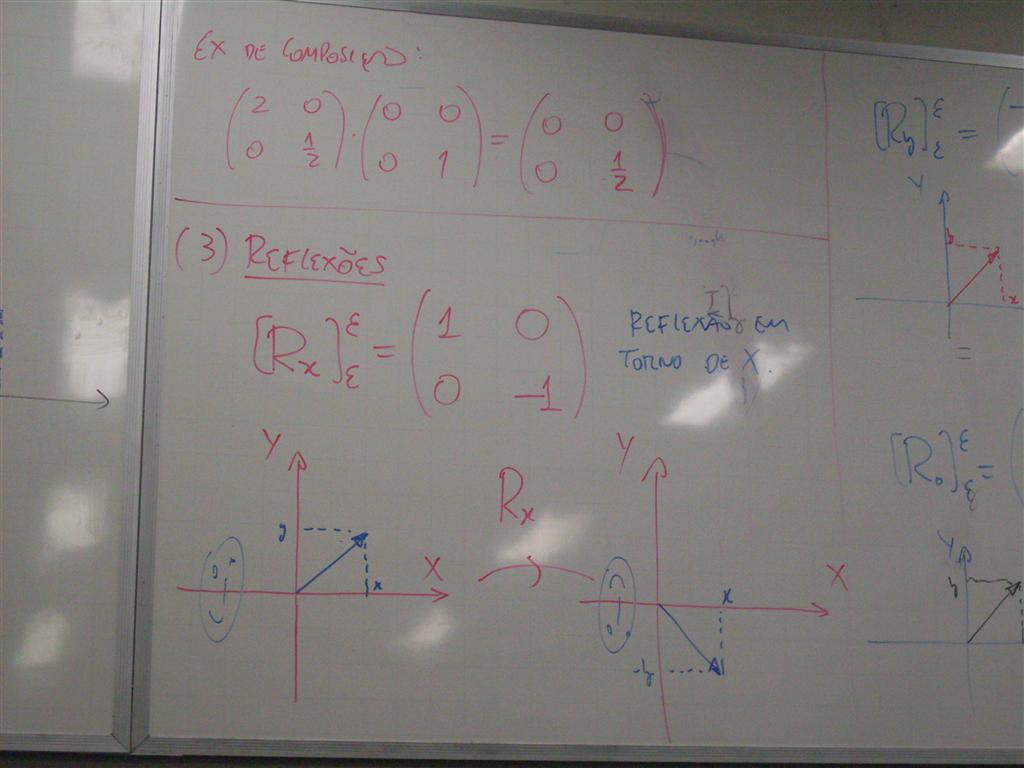 EX DE COMPOSIÇÃO:
(2 0 / 0 1/2) · (0 0 / 0 1) = (0 0 / 0 1/2)
(3) REFLEXÕES
[Rx]^ε_ε = (1 0 / 0 -1)
REFLEXÃO EM
TORNO DE X.
Y
y
x
X
Rx
Y
x
X
-y
[Ry]^ε_ε = (-
Y
y
x
=
[Ro]^ε_ε = (
Y
y